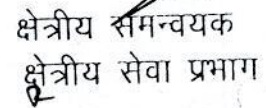 क्षेत्रीय समन्वयक
क्षेत्रीय सेवा प्रभाग